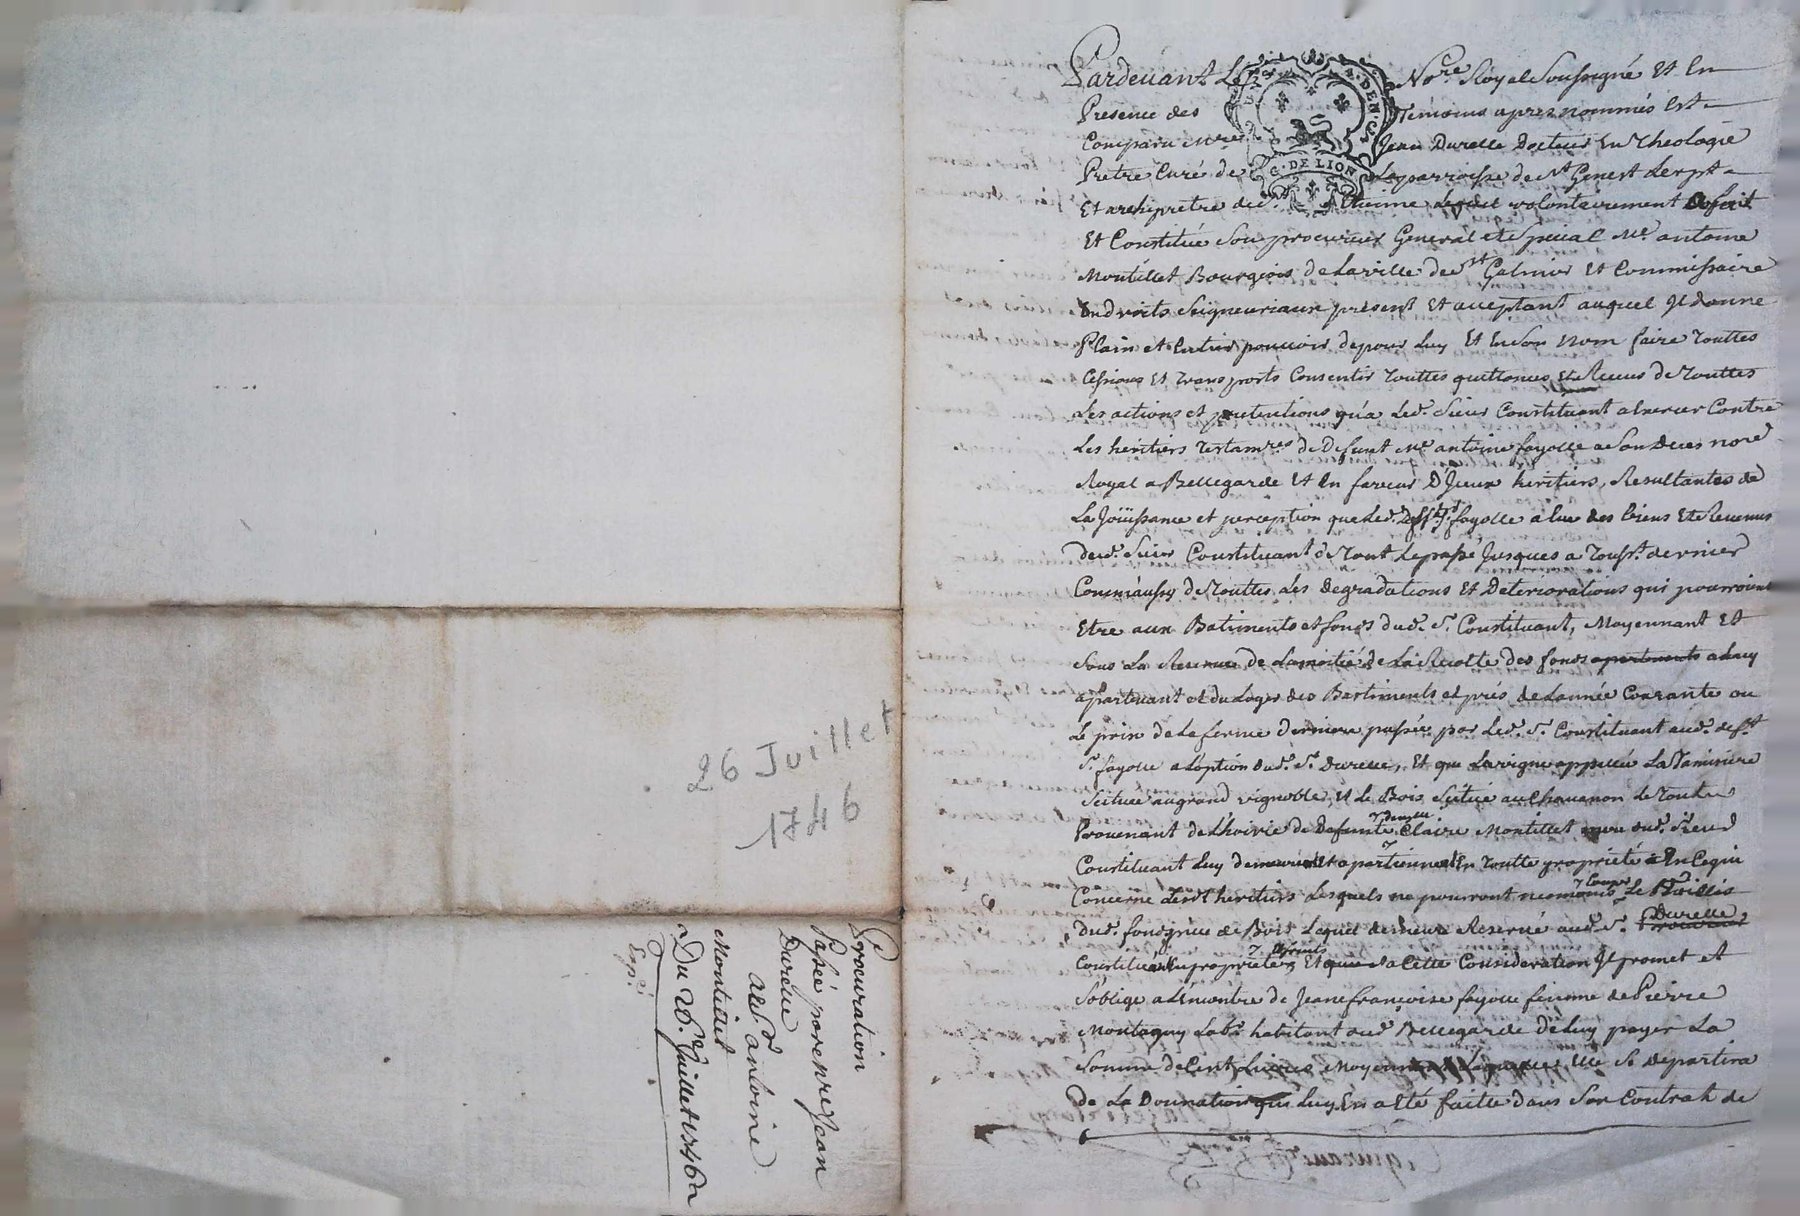 26 Juillet
1746
Procuration
Passée par sre pre Jean
Durelle
aud. Sr antoine
Montellet
Du 26e. Juillet 1746
Exp.
GEN. DE LION
Pardevant Le Nore. Royal Soussigné Et En
Presence des Temoins apres nommés Est
Comparu Mre Jean Durelle Docteur En Theologie
Pretre Curé de La parroisse de St Genest Lerpt
Et archipretre de St. Etienne Lequel volontairement a fait
Et Constitué Son procureur General et Special Me. antoine
Montellet Bourgeois de La ville de St Galmier Et Commissaire
En droits Seigneuriaux present Et acceptant auquel Il donne
Plain et Entier pouvoir de pour Luy Et En Son Nom faire Touttes
Cessions Et Transports Consentir Touttes quittances Et Receus de Touttes
Les actions et pretentions qu'a Led. Sieur Constituant a Exercer Contre
Les heritiers Testamres de Defunt Me antoine fayolle a Son Deces nore
Royal a Bellegarde Et En faveur D'Iceux heritiers, Resultantes de
La Joüissance et perception que Led. Defft Sr. fayolle a Eue des biens Et Revenus
dud. Sieur Constituant de Tout Le passé Jusques a Touss. dernier
Comm'aussy de Touttes Les Degradations Et Deteriorations qui pourroient
Etre aux Batiments et fonds dud. Sr. Constituant, Moyennant Et
Sous La Reserve de La moitié de La Recolte des fonds apartenants a Luy
apartenant et du Loyer des Bartiments et prés de L'année Courante ou
Le prix de La ferme derniere passée par Led. Sr. Constituant aud. defft
Sr. fayolle a L'option dud. Sr. Durelle, Et que La vigne appellée La Taminiere
Scituée au grand vignoble, Et Le Bois Scitué au Chavanon Le Tout
Provenant de L'hoirie de Defunte Claire Montellet mere dud. Sieur
Constituant Luy demeurent et apartiennent En Toutte proprieté En Ce qui
Concerne Lesd. heritiers Lesquels ne pourront neomoins Couper Le Taillis
dud. fonds Lequel demeure Reservé aud. Sr. Durelle
Constituant En proprieté Et a Cette Consideration Il promet et
S'oblige a L'Encontre de Jeane françoise fayolle femme de Pierre
Montagny Labr. habitant aud. Bellegarde de Luy payer La
Somme de Cent Livres Moyennant Laquelle Elle Se Departira
de La Donnation qui Luy En a Eté faitte Dans Son Contrat de